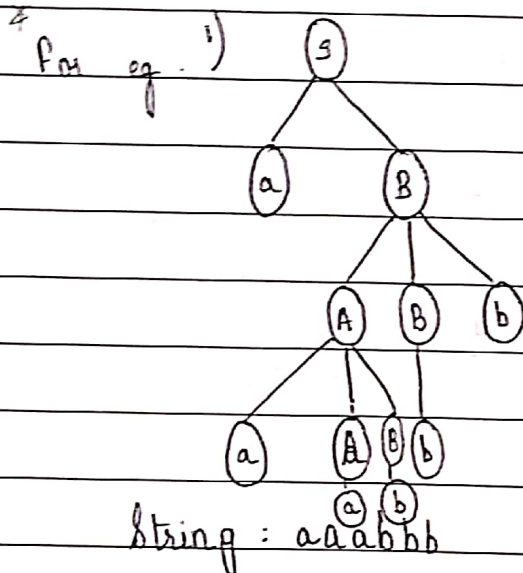 For eg. 1)
S
a B
A B b
a A B b
a b
String : aaabbb